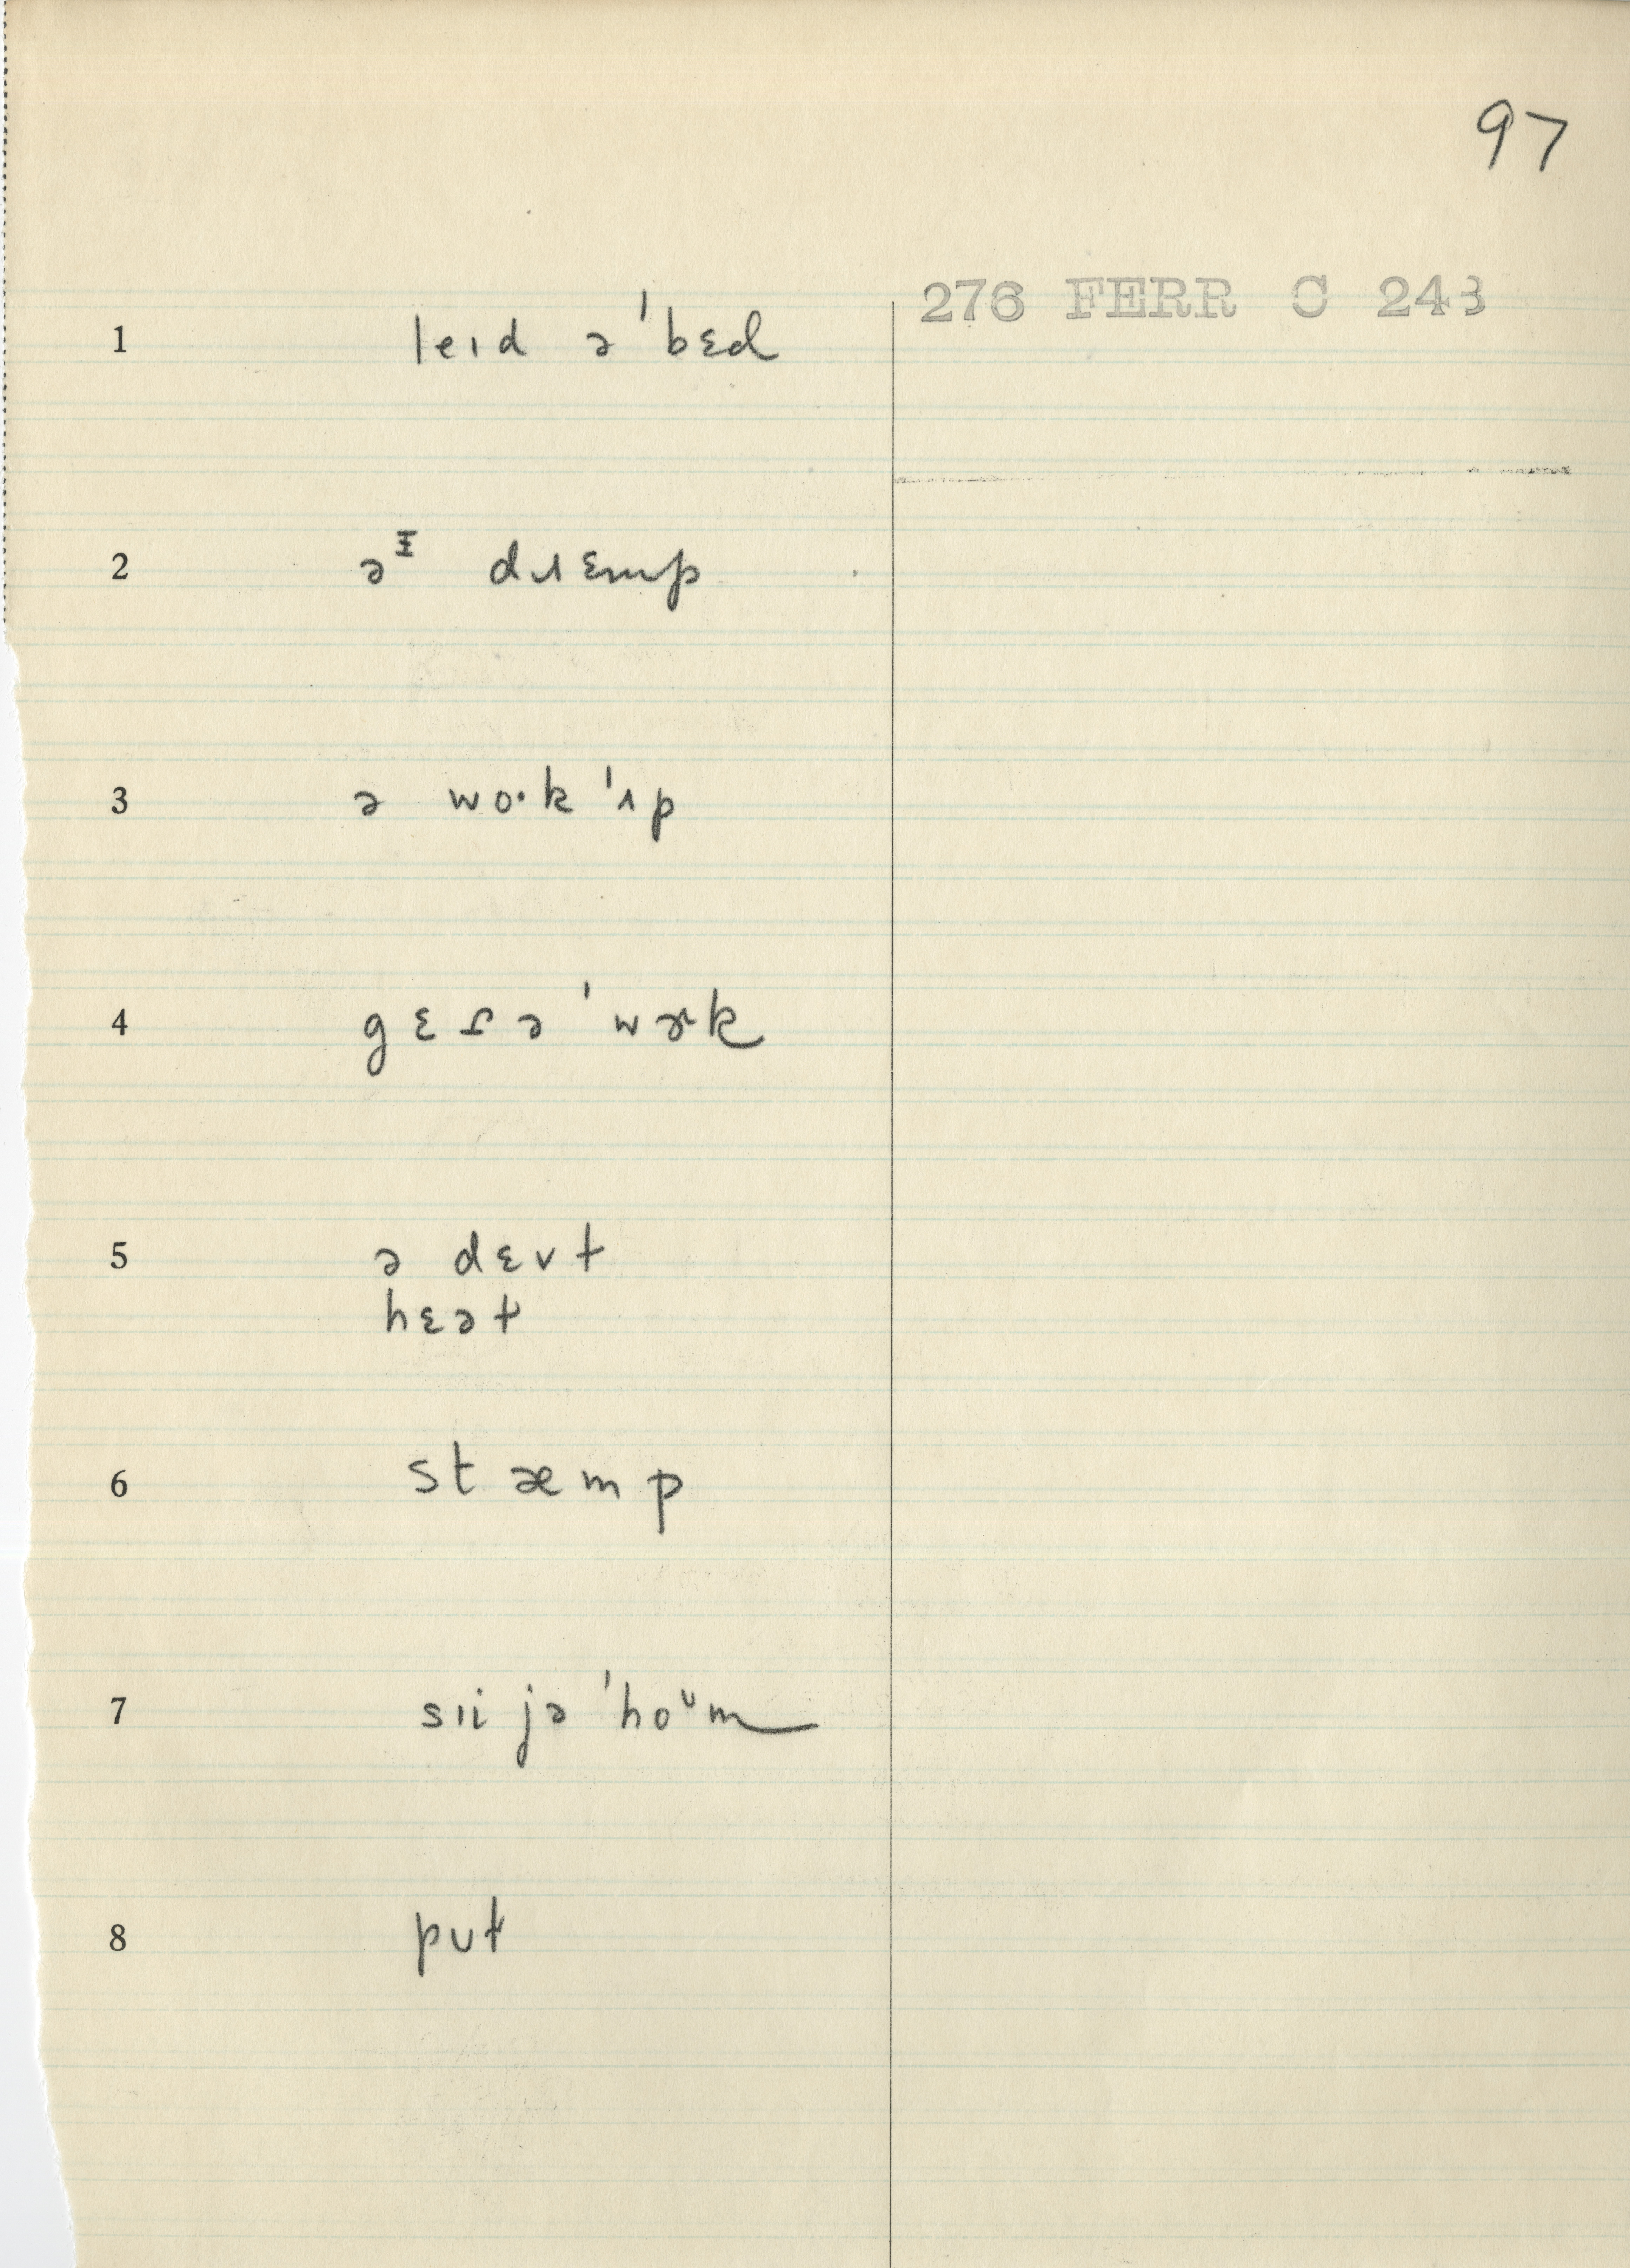 97
276 FERR C 243
1 leɪd ə ˈbɛd
2 əᵻ dɹɛmp
3 ə wo·k ˈʌp
4 gɛɾə ˈwɚk
5 ə dɛvt
hɛət
6 stæmp
7 sɪi jə ˈhoᶷm
8 pʊt